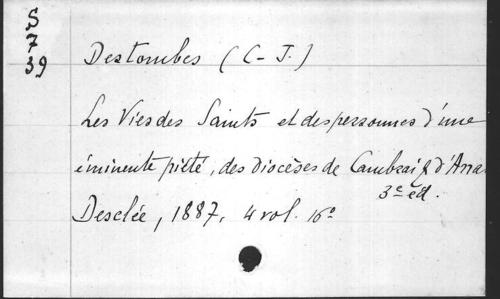 S
7
39
Destombes (C-J.)
Les Vies des Saints et des personnes d'une
éminente piété, des diocèses de Cambrai & d'Arra
3e éd.
Desclée, 1887, 4 vol. 16o